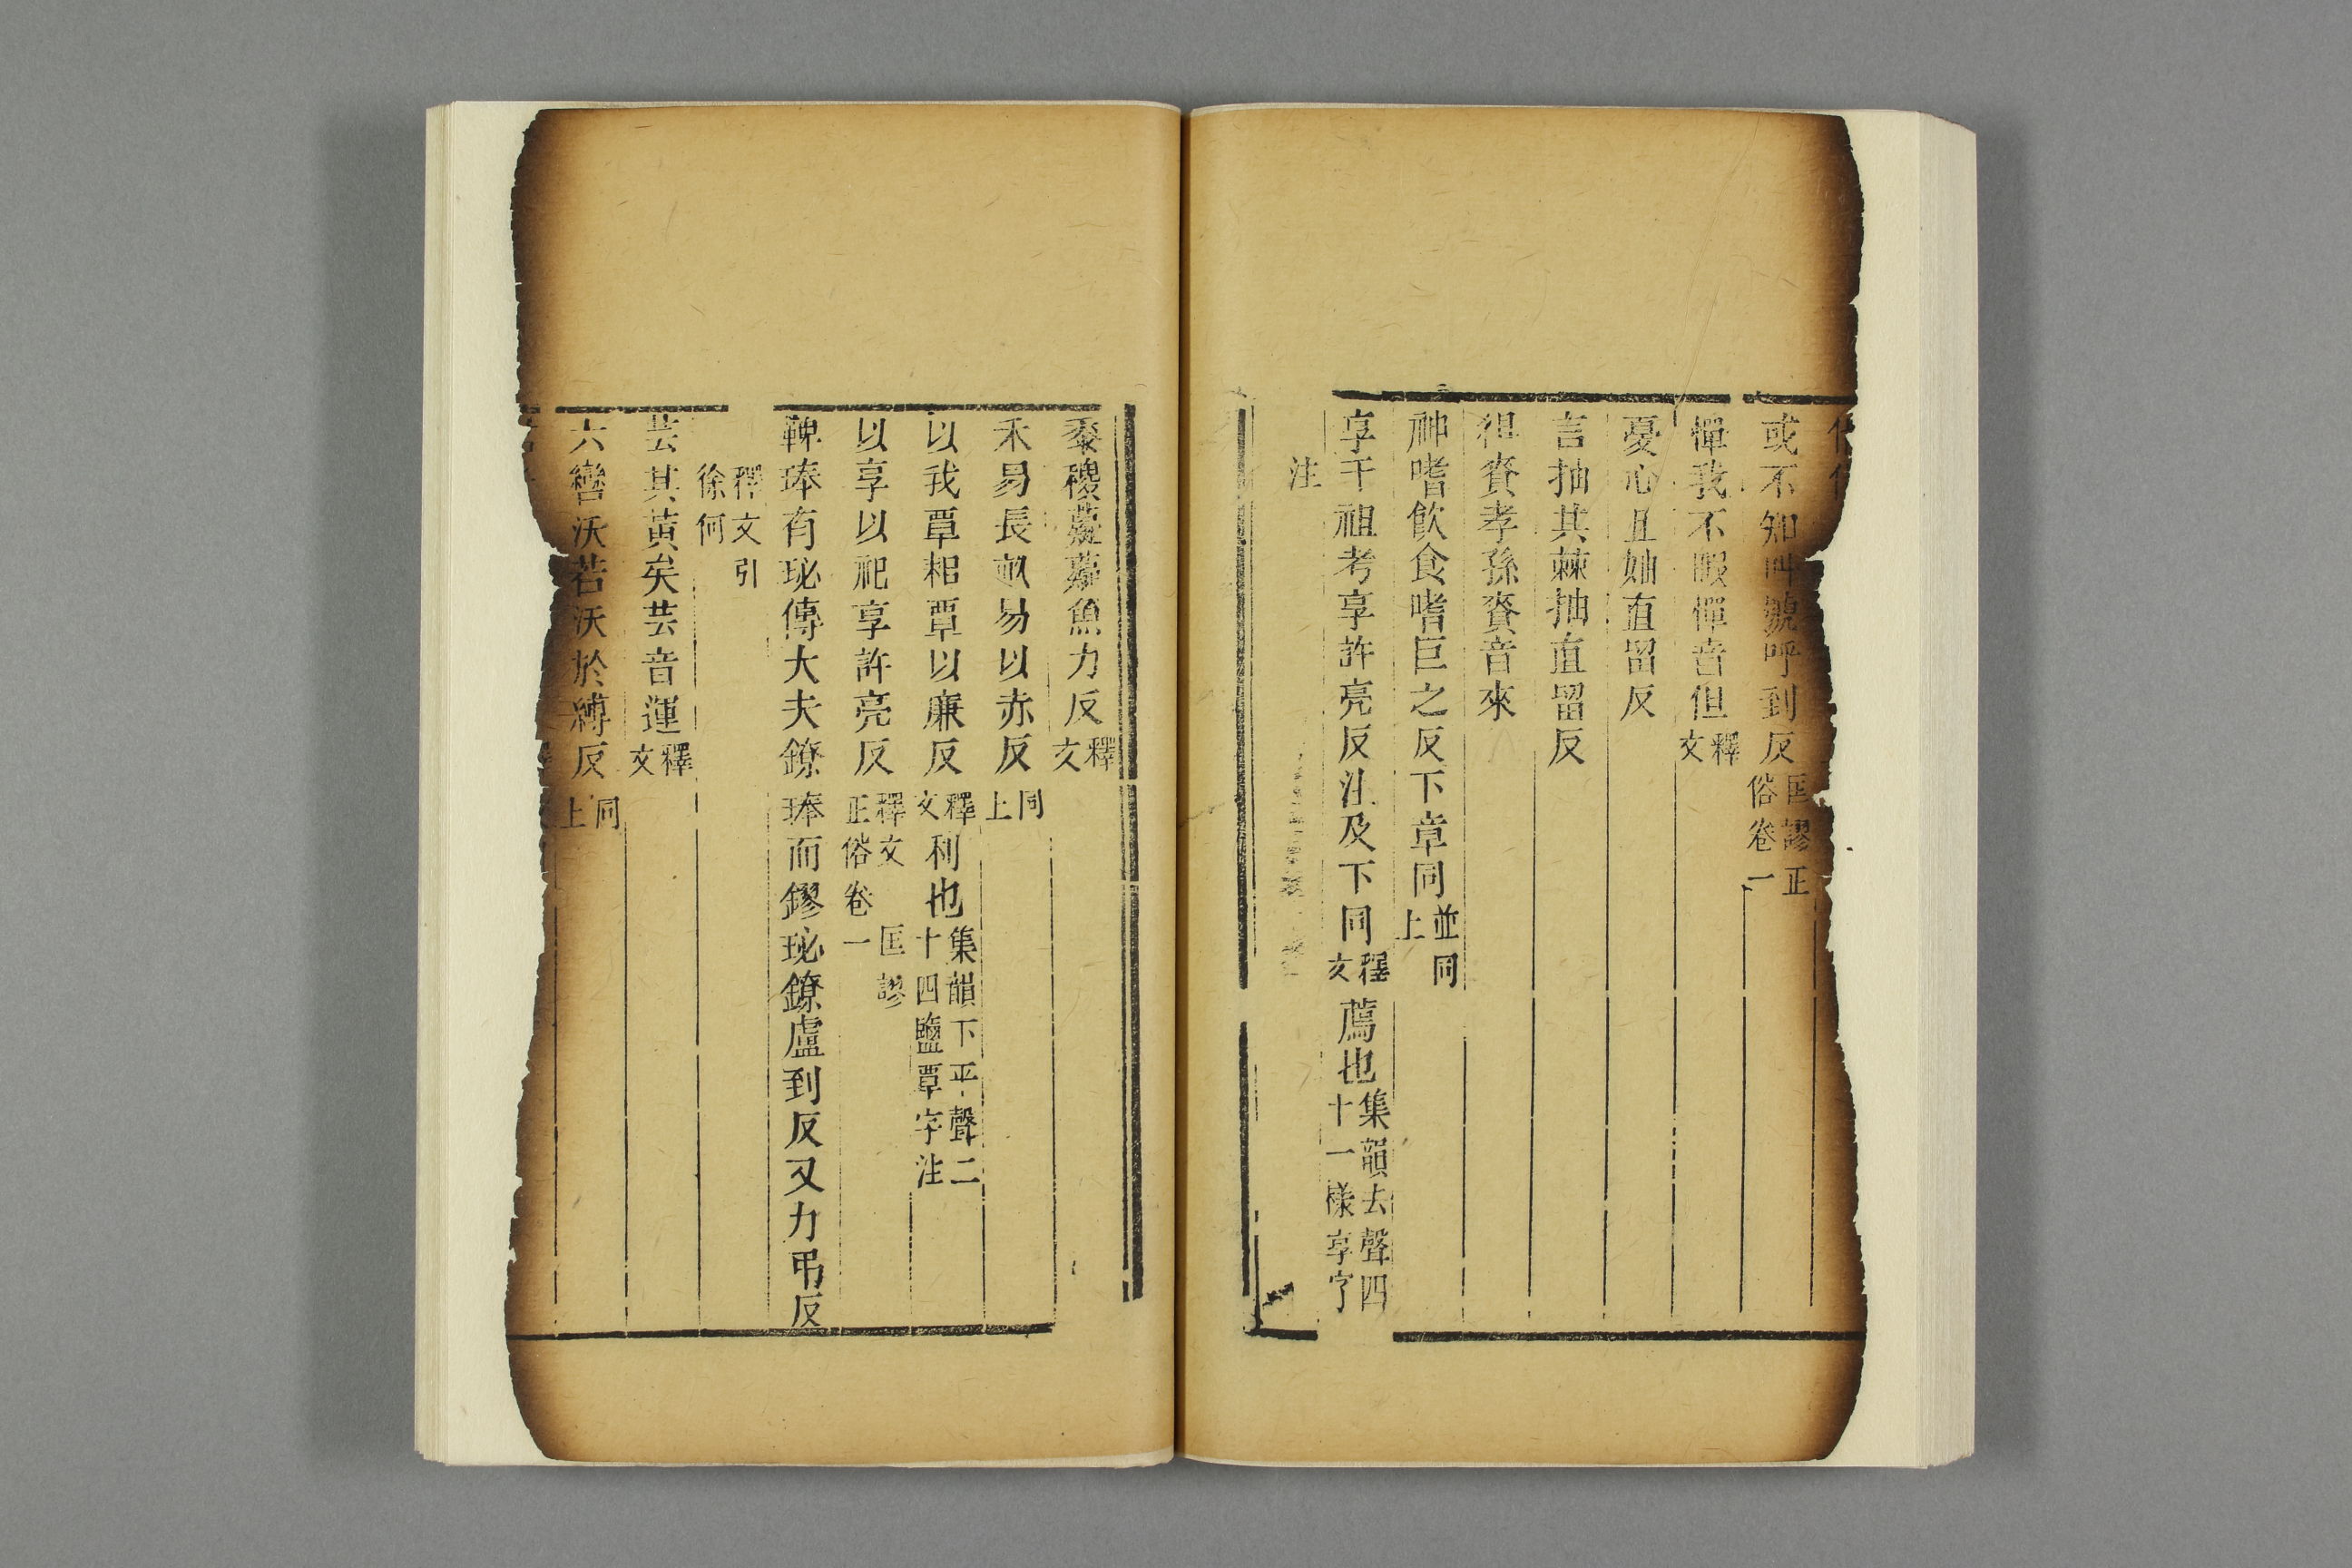 或不知叫號呼到反匡謬正俗卷一
憚我不暇憚音但釋文
憂心且妯直留反
言抽其棘抽直留反
徂賚孝孫賚音來
神嗜飲食嗜巨之反下章同並同上
享于祖考享許亮反注及下同釋文薦也集韻去聲四十一樣享字
注
黍稷薿薿魚力反釋文
禾易長畝易以赤反同上
以我覃耜覃以廉反釋文利也集韻下平聲二十四鹽覃字注
以享以祀享許亮反釋文匡謬正俗卷一
鞞琫有珌傳大夫鐐琫而鏐珌鐐盧到反又力弔反
釋文引徐何
芸其黃矣芸音運釋文
六轡沃若沃於縛反同上